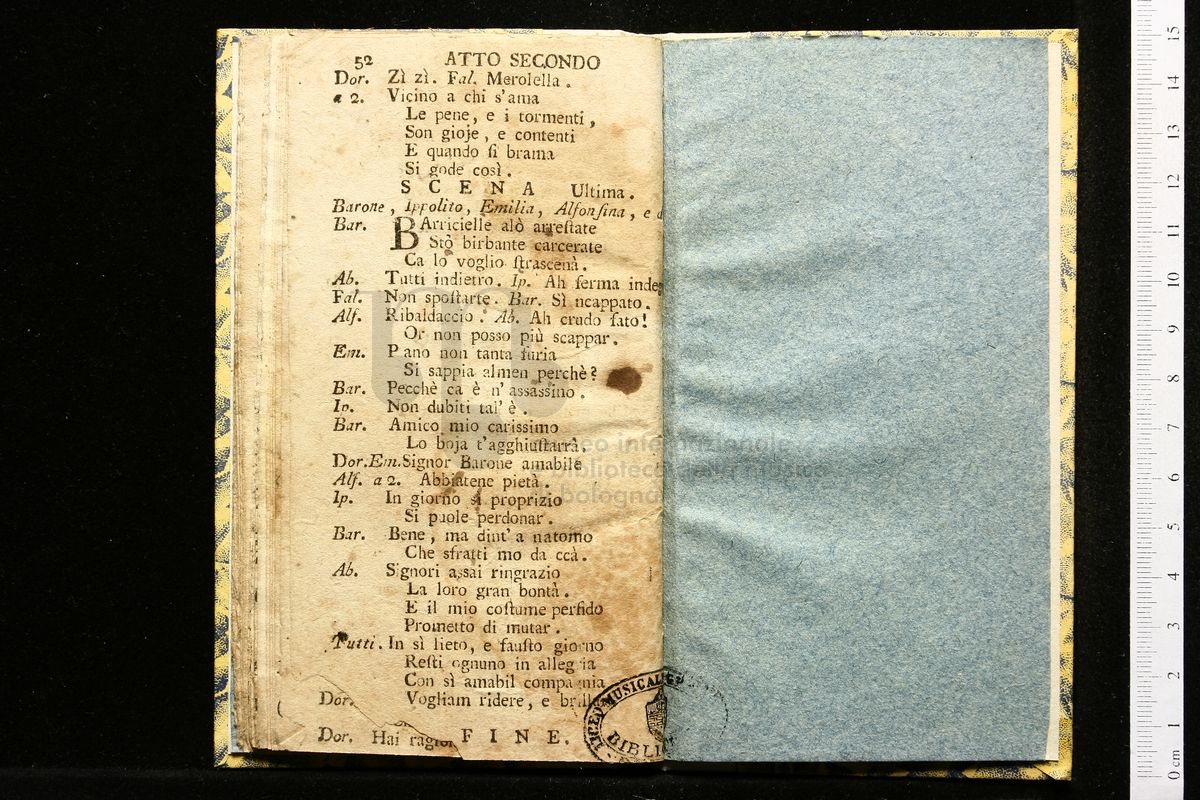 52 ATTO SECONDO
Dor. Zì zì. Fal. Merolella.
a 2. Vicino a chi s'ama
Le pene, e i tormenti,
Son gioje, e contenti
E quando ſi brama
Si gode così.
SCENA Ultima.
Barone, Ippolito, Emilia, Alfonſina, e d
Bar. BArricielle alò arreſtate
Stò birbante carcerate
Ca lo voglio ſtraſcenà.
Ab. Tutti indietro. Ip. Ah ferma inde
Fal. Non spoſtarte. Bar. Sì ncappato.
Alf. Ribaldaccio. Ab. Ah crudo fato!
Or non posso più scappar.
Em. P ano non tanta furia
Si sappia almen perchè?
Bar. Pecchè ca è n'assassino.
Ip. Non dubiti tal' è.
Bar. Amico mio carissimo
Lo boja t'agghiuſtarrà.
Dor.Em. Signor Barone amabile
Alf. a 2. Abbiatene pietà.
Ip. In giorno sì proprizio
Si puole perdonar.
Bar. Bene, ma dint'a natomo
Che sfratti mo da ccà.
Ab. Signori assai ringrazio
La loro gran bontà.
E il mio coſtume perfido
Prometto di mutar.
Tutti. In sì lieto, e fauſto giorno
Reſti ognuno in allegria
Con sì amabil compagnia
Dor. Vogliam ridere, e brill
Dor. Hai ragion FINE.
LICEO MUSICALE
BIBLIO
museo internazionale
e biblioteca della musica
bologna
0 cm 1 2 3 4 5 6 7 8 9 10 11 12 13 14 15